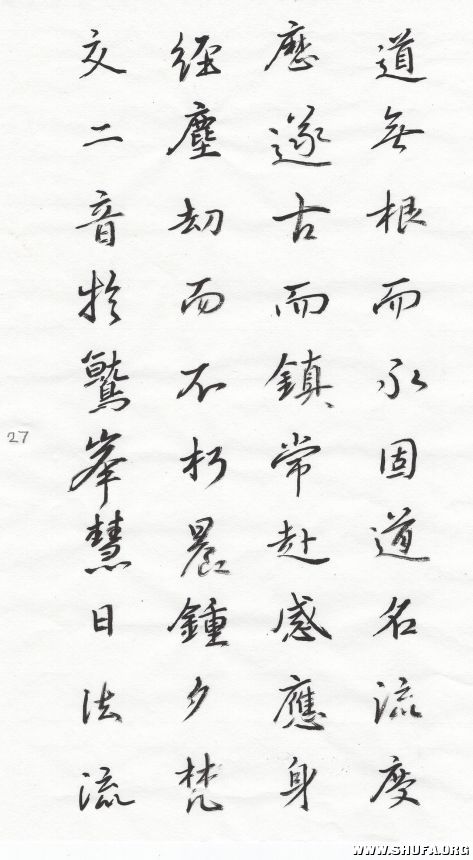 道無根而永固道名流慶
歷遂古而鎮常赴感應身
經塵劫而不朽晨鍾夕梵
交二音於鷲峯慧日法流
27
WWW.SHUFA.ORG